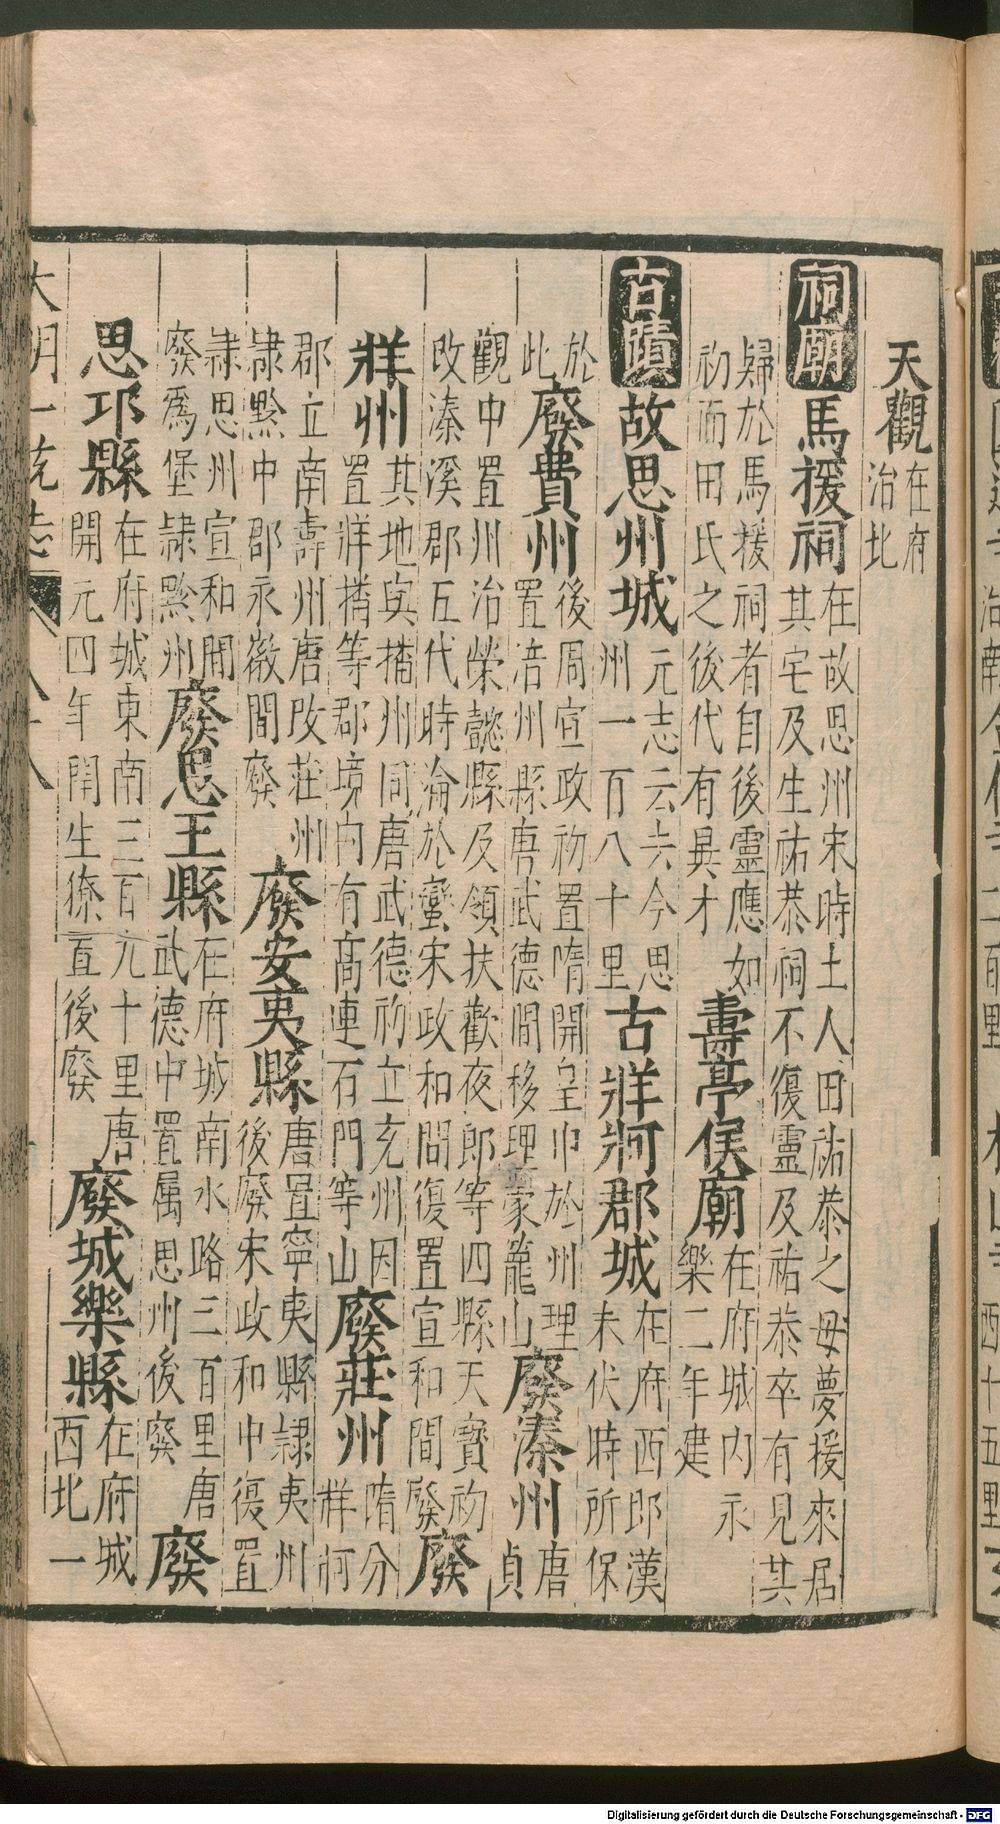 天觀在府治北
祠廟馬援祠在故思州宋時土人田祐恭之母夢援來居其宅及生祐恭祠不復靈及祐恭卒有見其
歸於馬援祠者自後靈應如初而田氏之後代有異才壽亭侯廟在府城內永樂二年建
古蹟故思州城元志云去今思州一百八十里古牂牁郡城在府西郎漢末伏時所保
於此廢費州後周宣政初置隋開皇中於州理置涪州縣唐武德間移理蒙籠山廢溱州唐貞
觀中置州治榮懿縣及領扶歡夜郎等四縣天寶初改溱溪郡五代時淪於蠻宋政和間復置宣和間廢廢
牂州其地與播州同唐武德初立充州因置牂播等郡境內有高連石門等山廢莊州隋分牂牁
郡立南壽州唐改莊州隸黔中郡永徽間廢廢安夷縣唐置寧夷縣隷夷州後廢宋政和中復置
隷思州宣和間廢爲堡隷黔州廢思王縣在府城南水路三百里唐武德中置屬思州後廢廢
思邛縣在府城東南三百九十里唐開元四年開生獠置後廢廢城樂縣在府城西北一
大明一統志 卷八十八
Digitalisierung gefördert durch die Deutsche Forschungsgemeinschaft - DFG